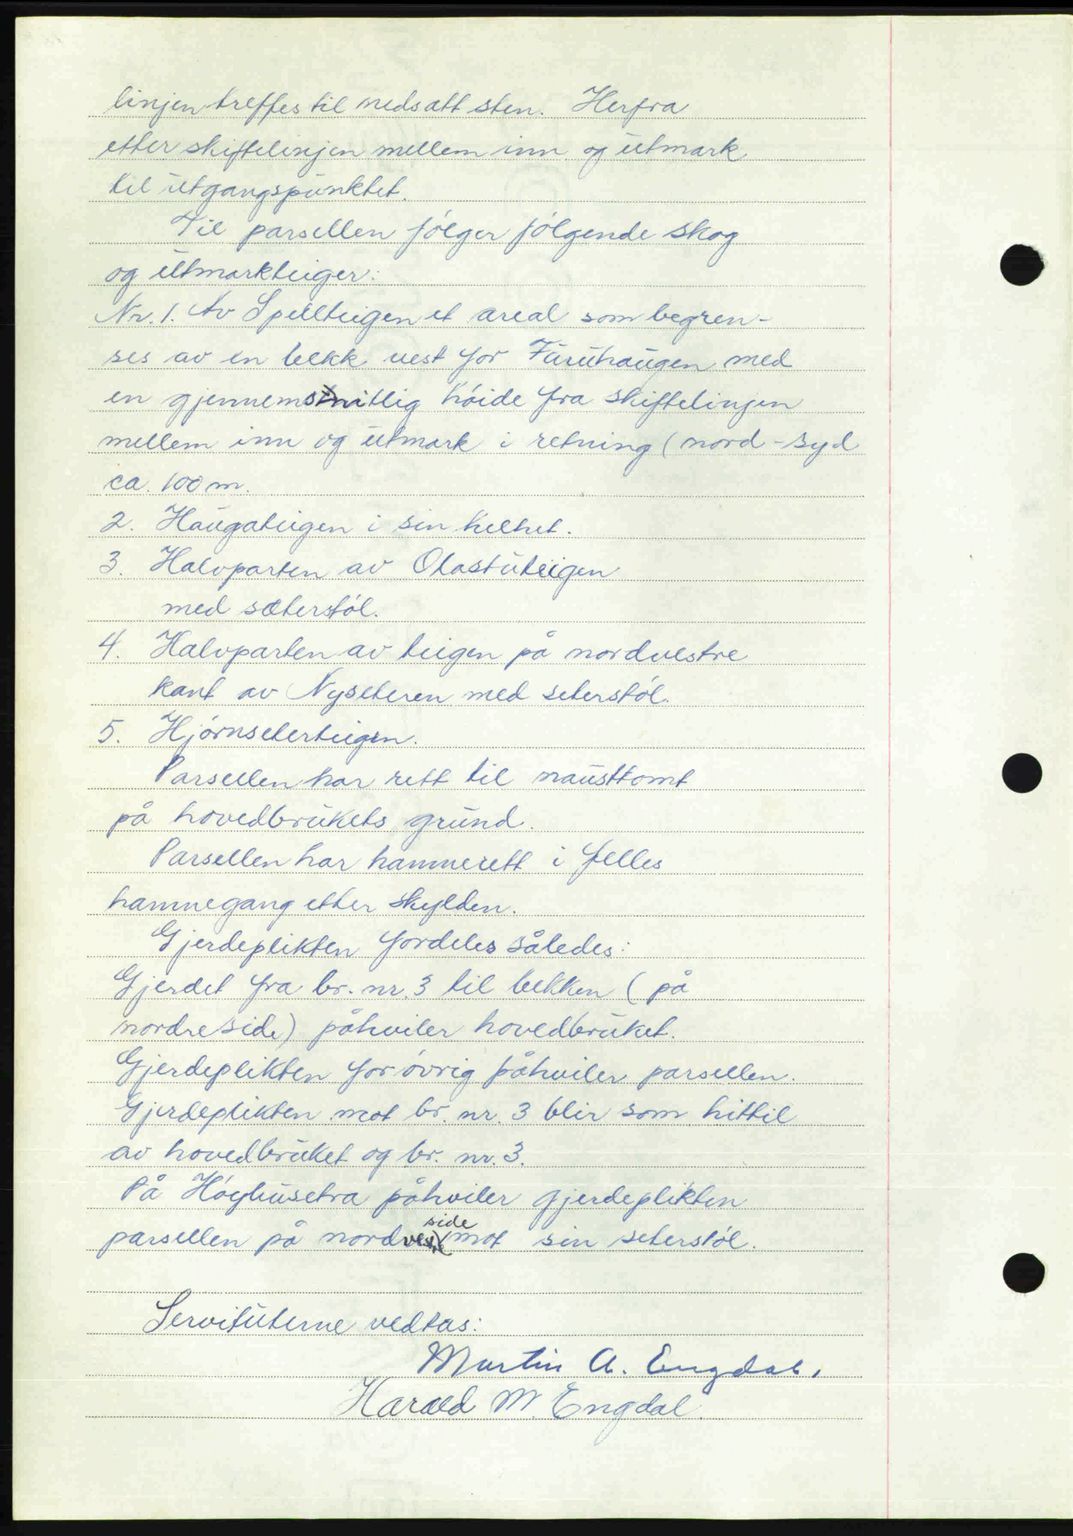 linjen treffes til nedsatt sten. Herfra
etter skiftelinjen mellem inn og utmark
til utgangspunktet.
Til parsellen følger følgende skog
og utmarkteiger:
Nr. 1. Av Spellteigen et areal som begren-
ses av en bekk vest for Furuhaugen med
en gjennemsnitlig høide fra skiftelinjen
mellem inn og utmark i retning (nord-syd
ca. 100 m.
2. Haugateigen i sin helhet.
3. Halvparten av Olastuteigen
med sæterstøl.
4. Halvparten av teigen på nordvestre
kant av Nyseteren med seterstøl.
5. Hjørnseterteigen.
Parsellen har rett til nausttomt
på hovedbrukets grunn.
Parsellen har hamnerett i felles
hamnegang etter skylden.
Gjerdeplikten fordeles således:
Gjerdet fra br. nr. 3 til bekken (på
nordre side) påhviler hovedbruket.
Gjerdeplikten forøvrig påhviler parsellen.
Gjerdeplikten mot br. nr. 3 blir som hittil
av hovedbruket og br. nr. 3.
På Høyhusetra påhviler gjerdeplikten
parsellen på nordvestre side mot sin seterstøl.
Servitutterne vedtas:
Martin A. Engdal.
Harald M. Engdal.